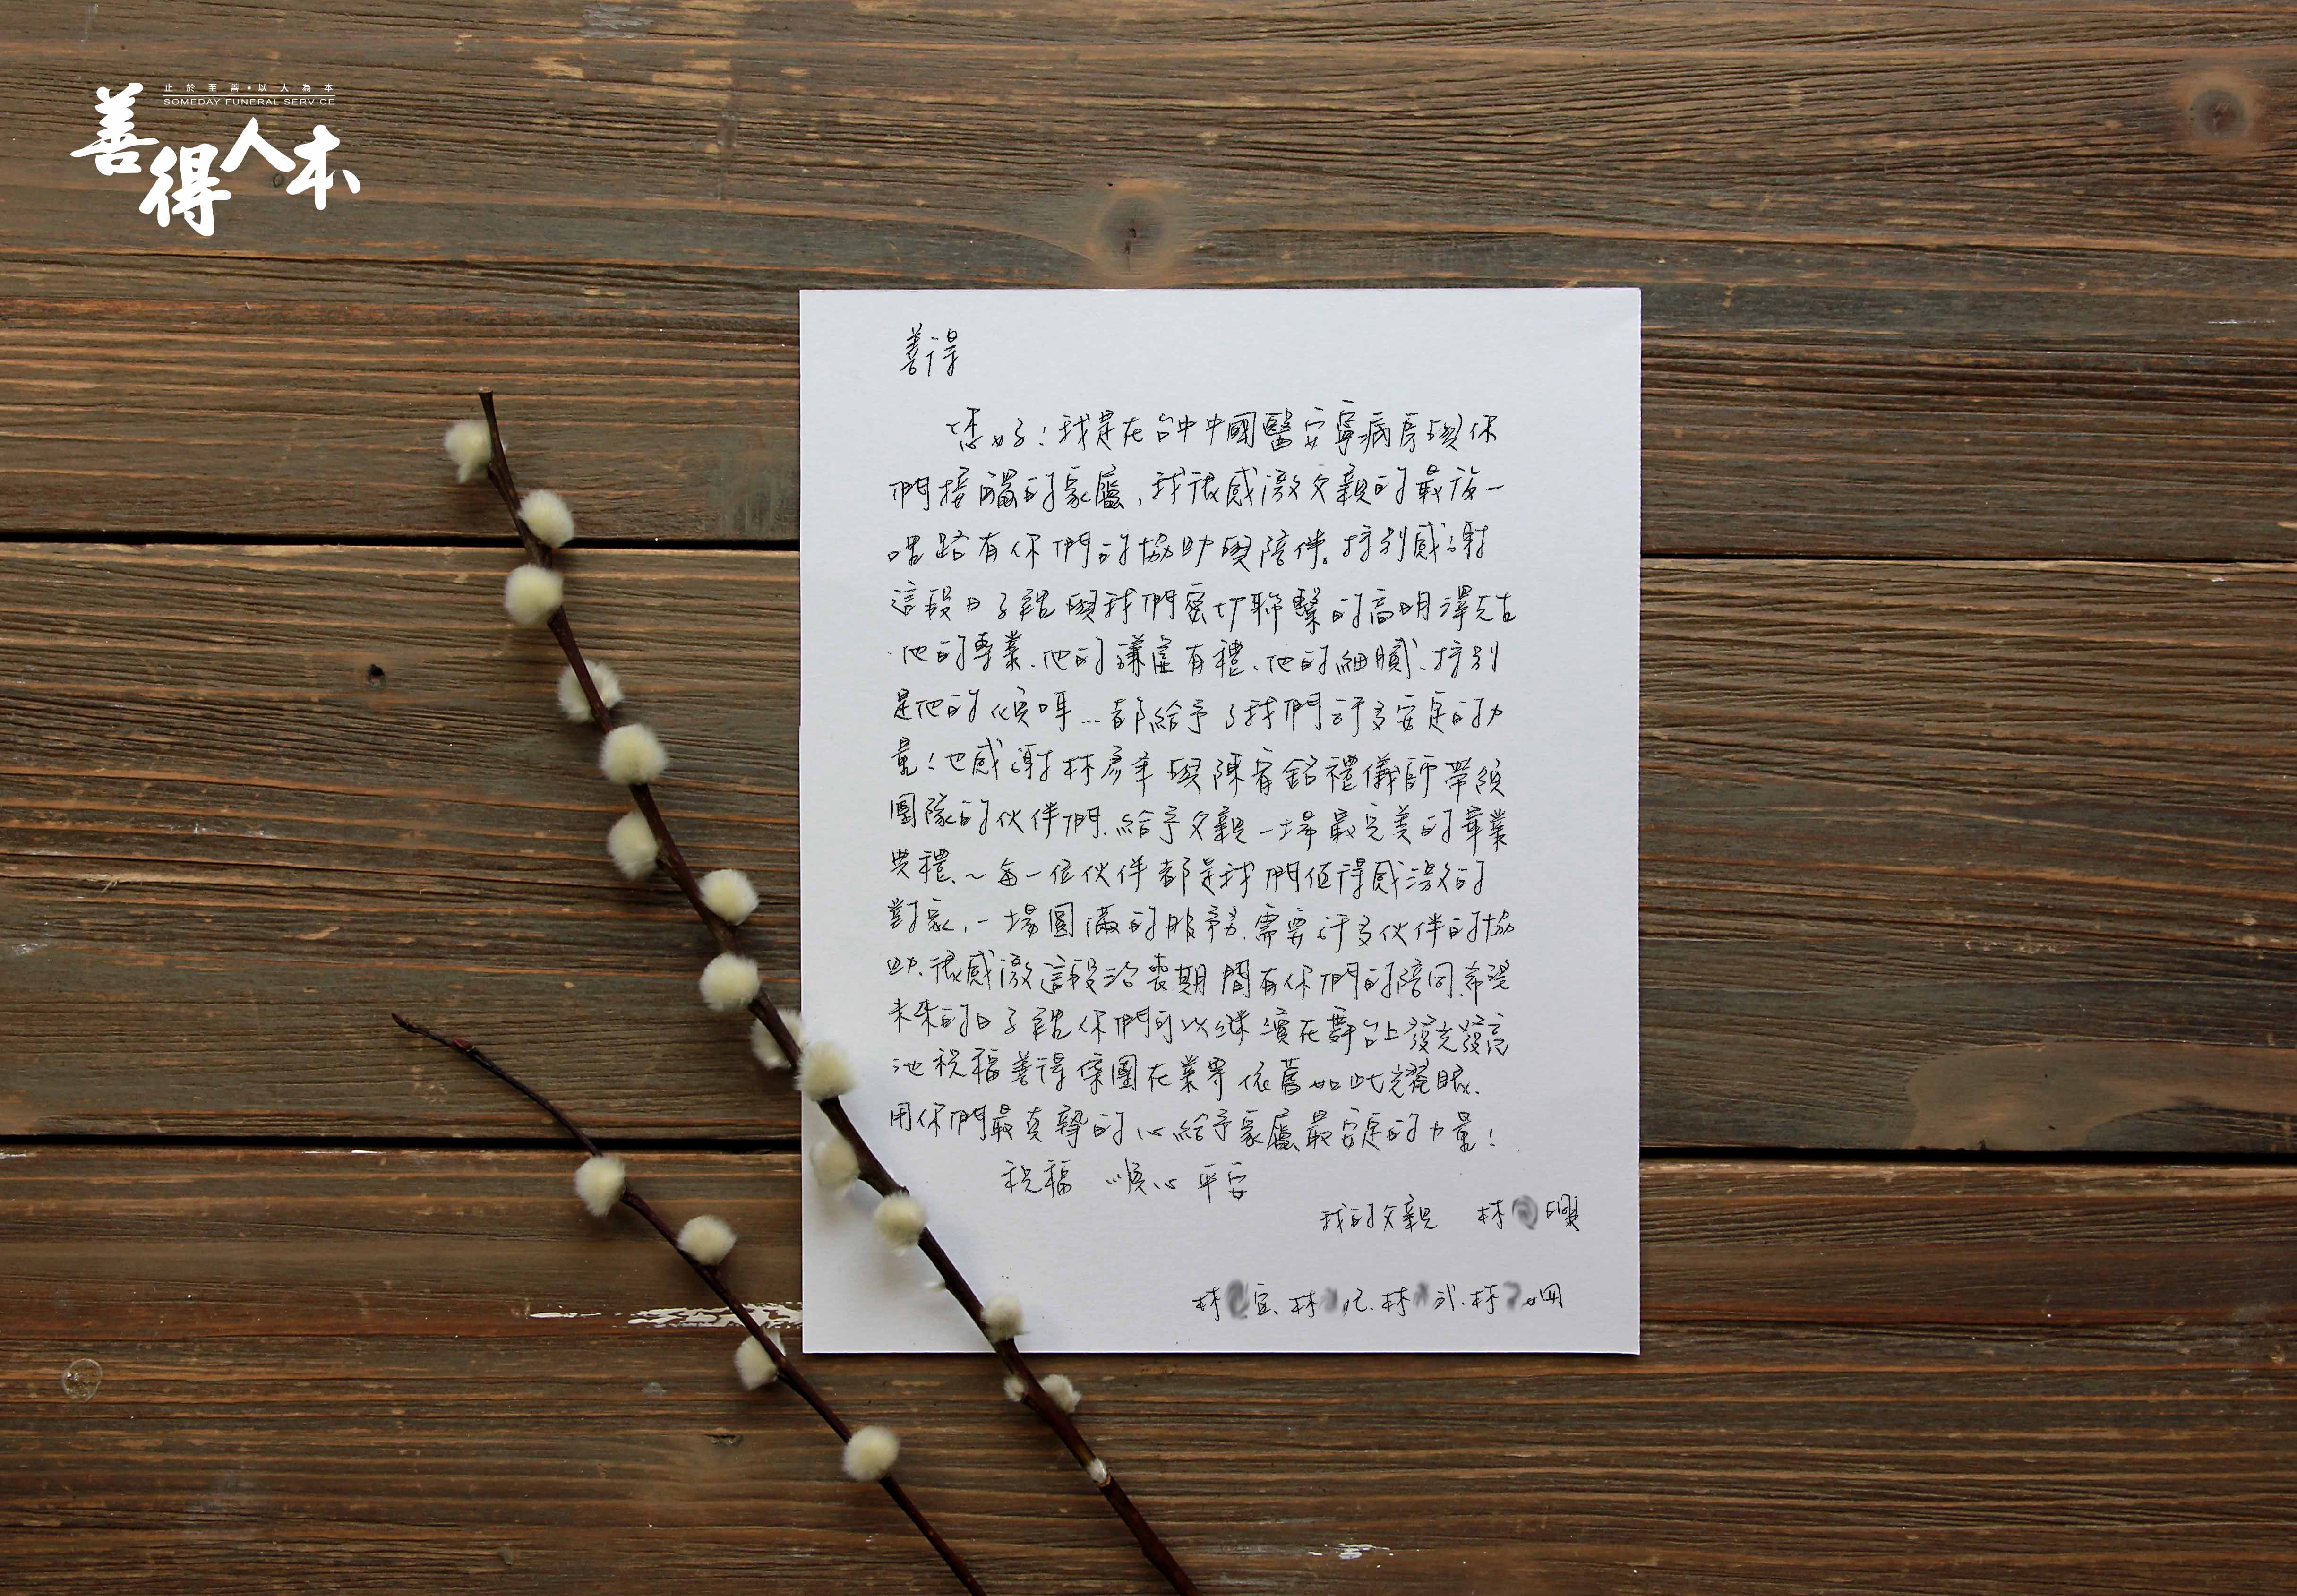 止於至善•以人為本
SOMEDAY FUNERAL SERVICE
善得人本
善得
您好！我是在台中中國醫安寧病房與你
們接觸的家屬，我很感激父親的最後一
哩路有你們的協助與陪伴。特別感謝
這段日子裡與我們密切聯繫的高明澤先生
他的專業、他的謙虛有禮、他的細膩、特別
是他的傾聽...都給予了我們許多安定的力
量！也感謝林彥辛與陳宥銘禮儀師帶領
團隊的伙伴們、給予父親一場最完美的畢業
典禮、～每一位伙伴都是我們值得感激的
對象，一場圓滿的服務、需要許多伙伴的協
助、很感激這段治喪期間有你們的陪同、希望
未來的日子裡你們可以繼續在舞台上發光發亮
也祝福善得集團在業界依舊如此耀眼、
用你們最真摯的心給予家屬最安定的力量！
祝福 順心平安
我的父親 林 興
林 宜、林 、林 、林